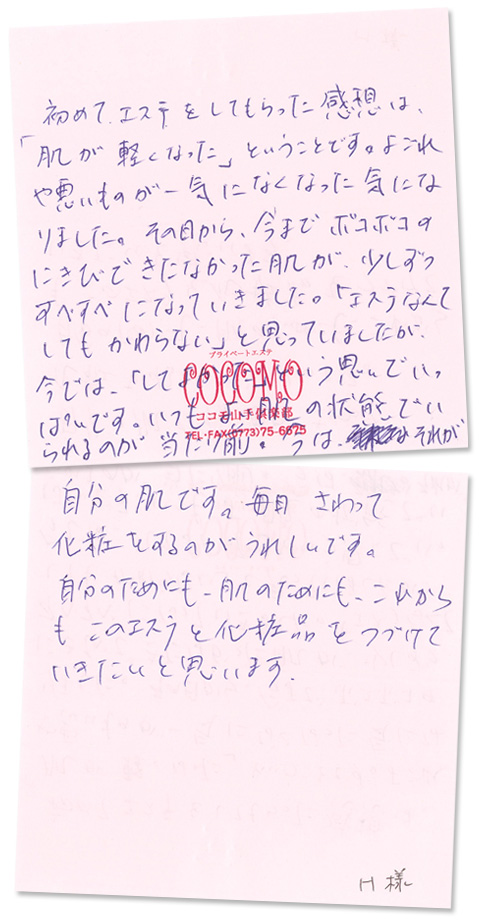 初めて、エステをしてもらった感想は、
「肌が軽くなった」ということです。よごれ
や悪いものが一気になくなった気にな
りました。その日から、今までボコボコの
にきびできたなかった肌が、少しずつ
すべすべになっていきました。「エステなんて
してもかわらない」と思っていましたが、
プライベートエステ
COCOMO
今では、「してよかった」という思いでいっ
ココモ山手倶楽部
ぱいです。いつもよい肌の状態でい
TEL・FAX(0773)75-6675
られるのが当たり前。今は、それが
自分の肌です。毎日さわって
化粧をするのがうれしいです。
自分のためにも、肌のためにも、これから
もこのエステと化粧品をつづけて
いきたいと思います。
H様